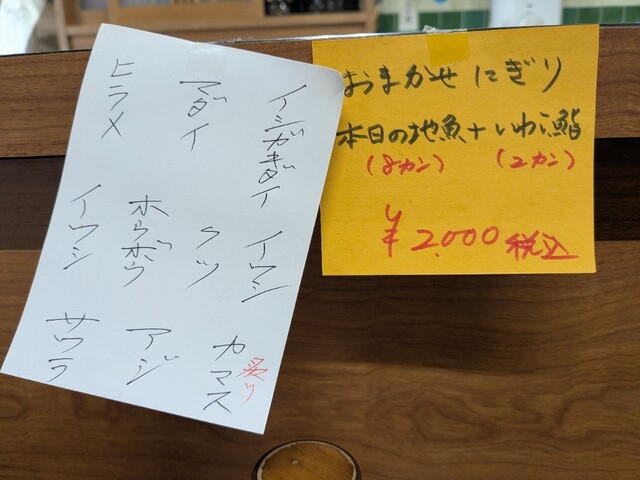 イシガキダイ
マダイ
ヒラメ
イワシ
ホウボウ
イワシ
炙り
カマス
アジ
サワラ
おまかせ にぎり
本日の地魚+いわし鮨
(8カン) (2カン)
¥2,000 税込